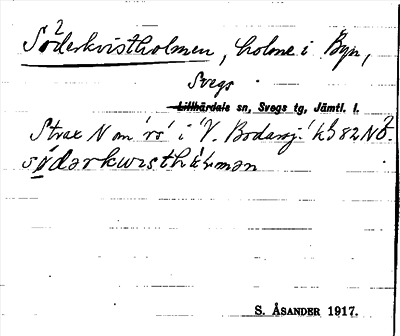 Söderkvistholmen, holme i Byn,
Svegs
Lillhärdals sn, Svegs tg, Jämtl. l.
Strax N om 'rs' i 'V. Bodarsj.' kb 82 NÖ
södərkwisthòlmən
S. ÅSANDER 1917.